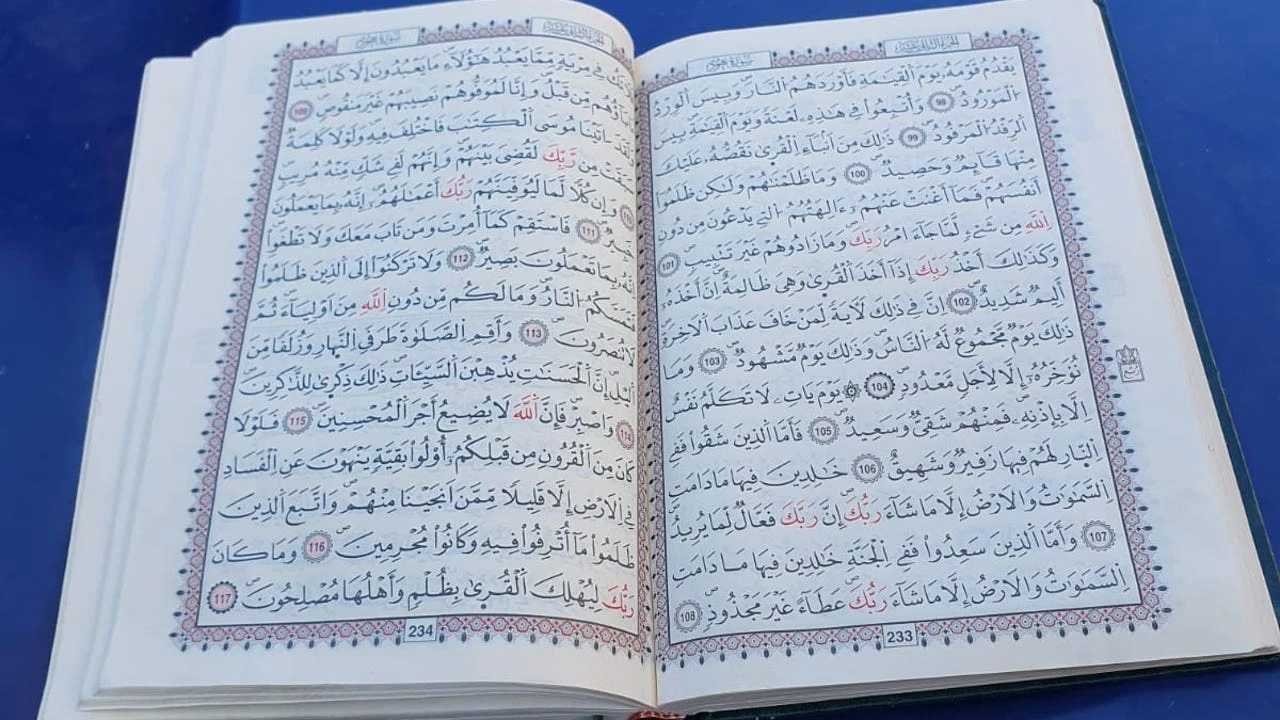 الجزء الثاني عشر
سورة هود
يَقْدُمُ قَوْمَهُۥ يَوْمَ ٱلْقِيَٰمَةِ فَأَوْرَدَهُمُ ٱلنَّارَ وَبِيسَ ٱلْوِرْدُ
ٱلْمَوْرُودُ 98 وَأُتْبِعُوا۟ فِي هَٰذِهِۦ لَعْنَةً وَيَوْمَ ٱلْقِيَٰمَةِ بِيسَ
ٱلرِّفْدُ ٱلْمَرْفُودُ 99 ذَٰلِكَ مِنْ أَنۢبَآءِ ٱلْقُرَىٰ نَقُصُّهُۥ عَلَيْكَ
مِنْهَا قَآئِمٌ وَحَصِيدٌ 100 وَمَا ظَلَمْنَٰهُمْ وَلَٰكِن ظَلَمُوٓا۟
أَنفُسَهُمْ فَمَآ أَغْنَتْ عَنْهُمُۥٓ ءَالِهَتُهُمُ ٱلتِي يَدْعُونَ مِن دُونِ
ٱللَّهِ مِن شَيْءٍ لَّمَّا جَآءَ امْرُ رَبِّكَ وَمَا زَادُوهُمْ غَيْرَ تَتْبِيبٍ 101
وَكَذَٰلِكَ أَخْذُ رَبِّكَ إِذَآ أَخَذَ ٱلْقُرَىٰ وَهِيَ ظَٰلِمَةٌ إِنَّ أَخْذَهُۥٓ
أَلِيمٌ شَدِيدٌ 102 إِنَّ فِي ذَٰلِكَ لَأٓيَةً لِّمَنْ خَافَ عَذَابَ ٱلَاخِرَةِ
ذَٰلِكَ يَوْمٌ مَّجْمُوعٌ لَّهُ ٱلنَّاسُ وَذَٰلِكَ يَوْمٌ مَّشْهُودٌ 103 وَمَا
نُؤَخِّرُهُۥٓ إِلَّا لِأَجَلٍ مَّعْدُودٍ 104 يَوْمَ يَاتِۦ لَا تَكَلَّمُ نَفْسٌ
إِلَّا بِإِذْنِهِۦ فَمِنْهُمْ شَقِيٌّ وَسَعِيدٌ 105 فَأَمَّا ٱلَّذِينَ شَقُوا۟ فَفِي
ٱلنَّارِ لَهُمْ فِيهَا زَفِيرٌ وَشَهِيقٌ 106 خَٰلِدِينَ فِيهَا مَا دَامَتِ
ٱلسَّمَٰوَٰتُ وَالَارْضُ إِلَّا مَا شَآءَ رَبُّكَ إِنَّ رَبَّكَ فَعَّالٌ لِّمَا يُرِيدُ
107 وَأَمَّا ٱلَّذِينَ سَعِدُوا۟ فَفِي ٱلْجَنَّةِ خَٰلِدِينَ فِيهَا مَا دَامَتِ
ٱلسَّمَٰوَٰتُ وَالَارْضُ إِلَّا مَا شَآءَ رَبُّكَ عَطَآءً غَيْرَ مَجْذُوذٍ 108
233
سورة هود
الجزء الثاني عشر
تَكُ فِي مِرْيَةٍ مِّمَّا يَعْبُدُ هَٰٓؤُلَآءِ مَا يَعْبُدُونَ إِلَّا كَمَا يَعْبُدُ
ءَابَآؤُهُم مِّن قَبْلُ وَإِنَّا لَمُوَفُّوهُمْ نَصِيبَهُمْ غَيْرَ مَنقُوصٍ 109
وَلَقَدَ اتَيْنَا مُوسَى ٱلْكِتَٰبَ فَاخْتُلِفَ فِيهِ وَلَوْلَا كَلِمَةٌ
سَبَقَتْ مِن رَّبِّكَ لَقُضِيَ بَيْنَهُمْ وَإِنَّهُمْ لَفِي شَكٍّ مِّنْهُ مُرِيبٍ
110 وَإِن كُلًّا لَمَا لَيُوَفِّيَنَّهُمْ رَبُّكَ أَعْمَٰلَهُمُۥٓ إِنَّهُۥ بِمَا يَعْمَلُونَ
خَبِيرٌ 111 فَاسْتَقِمْ كَمَآ أُمِرْتَ وَمَن تَابَ مَعَكَ وَلَا تَطْغَوِا۟
اِنَّهُۥ بِمَا تَعْمَلُونَ بَصِيرٌ 112 وَلَا تَرْكَنُوٓا۟ إِلَى ٱلَّذِينَ ظَلَمُوا۟
فَتَمَسَّكُمُ ٱلنَّارُ وَمَا لَكُم مِّن دُونِ ٱللَّهِ مِنَ اَوْلِيَآءَ ثُمَّ
لَا تُنصَرُونَ 113 وَأَقِمِ ٱلصَّلَوٰةَ طَرَفَيِ ٱلنَّهَارِ وَزُلَفًا مِّنَ
ٱلَّيْلِ إِنَّ ٱلْحَسَنَٰتِ يُذْهِبْنَ ٱلسَّيِّـَٔاتِ ذَٰلِكَ ذِكْرَىٰ لِلذَّٰكِرِينَ
114 وَاصْبِرْ فَإِنَّ ٱللَّهَ لَا يُضِيعُ أَجْرَ ٱلْمُحْسِنِينَ 115 فَلَوْلَا
كَانَ مِنَ ٱلْقُرُونِ مِن قَبْلِكُمُۥٓ أُو۟لُوا۟ بَقِيَّةٍ يَنْهَوْنَ عَنِ ٱلْفَسَادِ
فِي ٱلَارْضِ إِلَّا قَلِيلًا مِّمَّنَ اَنجَيْنَا مِنْهُمْ وَاتَّبَعَ ٱلَّذِينَ
ظَلَمُوا۟ مَآ أُتْرِفُوا۟ فِيهِ وَكَانُوا۟ مُجْرِمِينَ 116 وَمَا كَانَ
رَبُّكَ لِيُهْلِكَ ٱلْقُرَىٰ بِظُلْمٍ وَأَهْلُهَا مُصْلِحُونَ 117
234